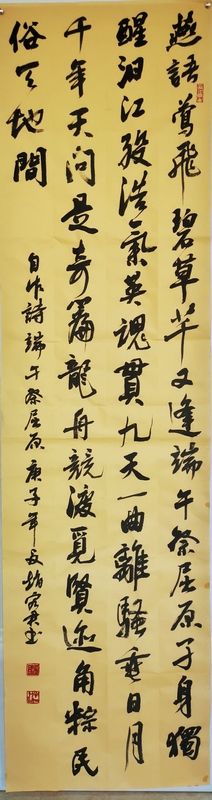 燕語鶯飛碧草芊又逢端午祭屈原孑身獨
醒汨江歿浩氣英魂貫九天一曲離騷垂日月
千年天問是奇篇龍舟競渡覓賢迹角粽民
俗天地間
自作詩端午祭屈原庚子年夏趙